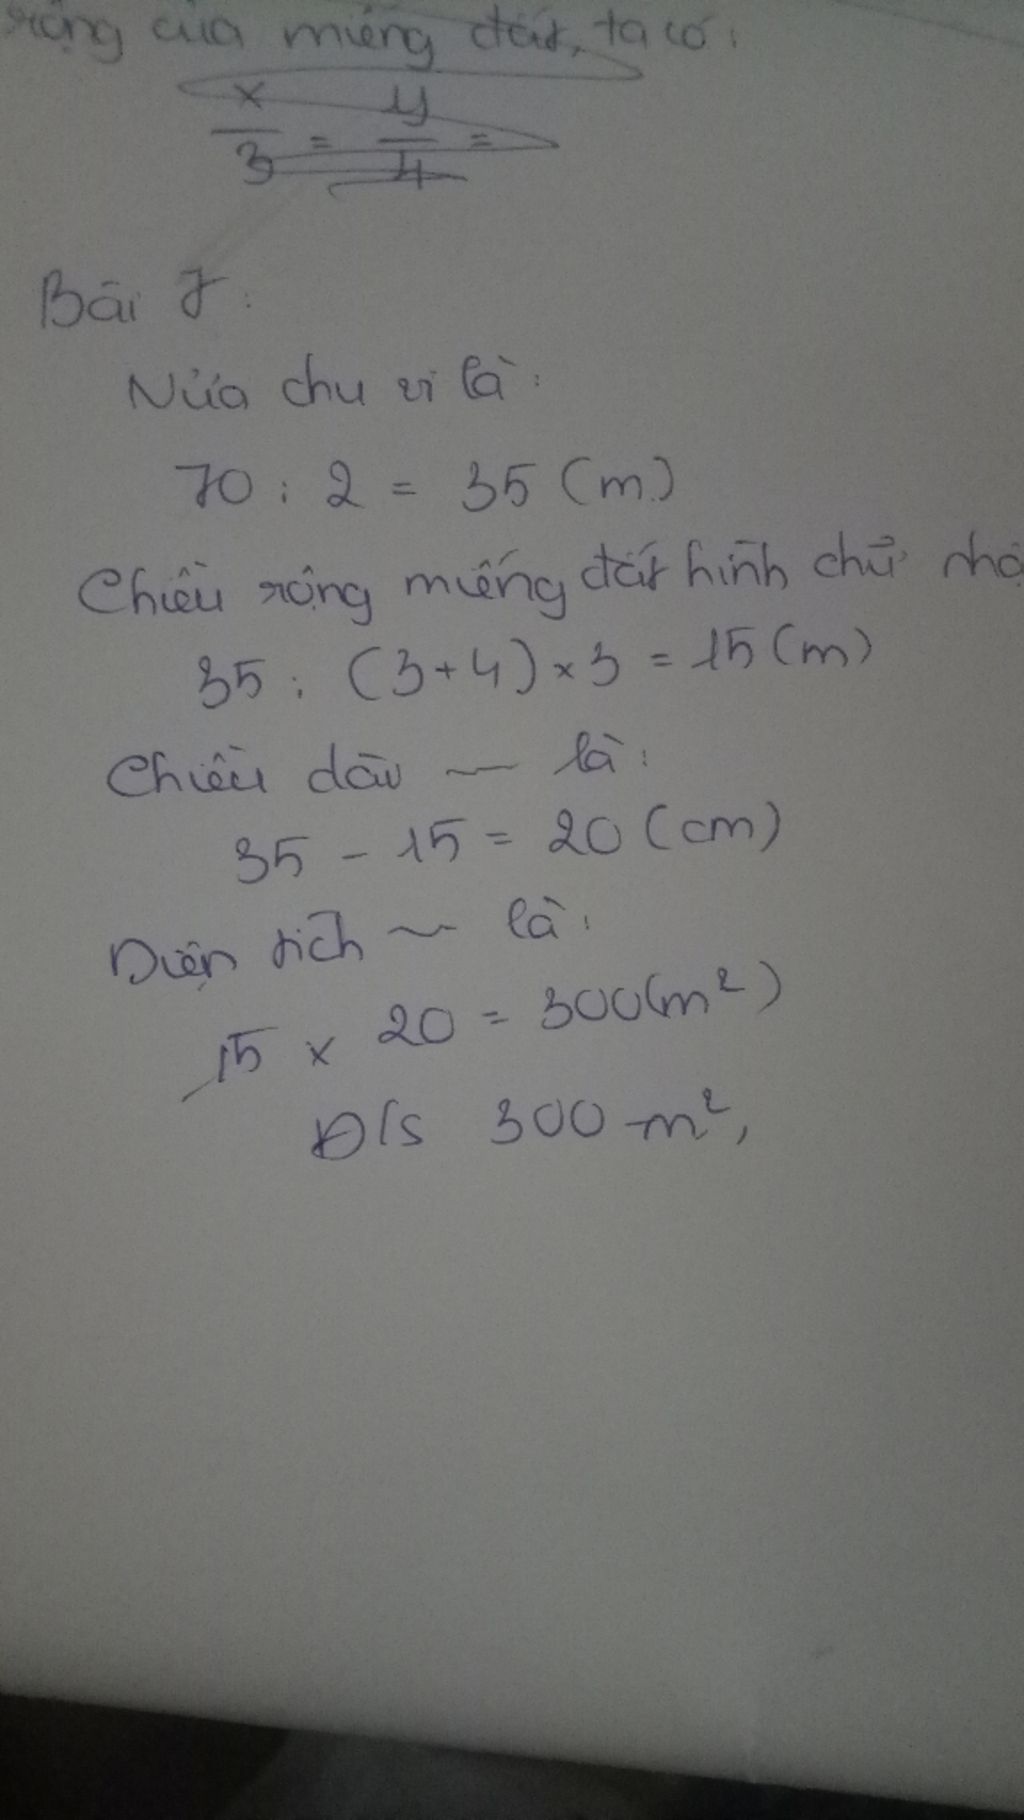 rộng của miếng đất, ta có:
x/3 = y/4 =
Bài 7:
Nửa chu vi là:
70 : 2 = 35 (m)
Chiều rộng miếng đất hình chữ nhậ
35 : (3+4) × 3 = 15 (m)
Chiều dài ~ là:
35 - 15 = 20 (cm)
Diện tích ~ là:
15 × 20 = 300 (m²)
Đ/s 300 m²,